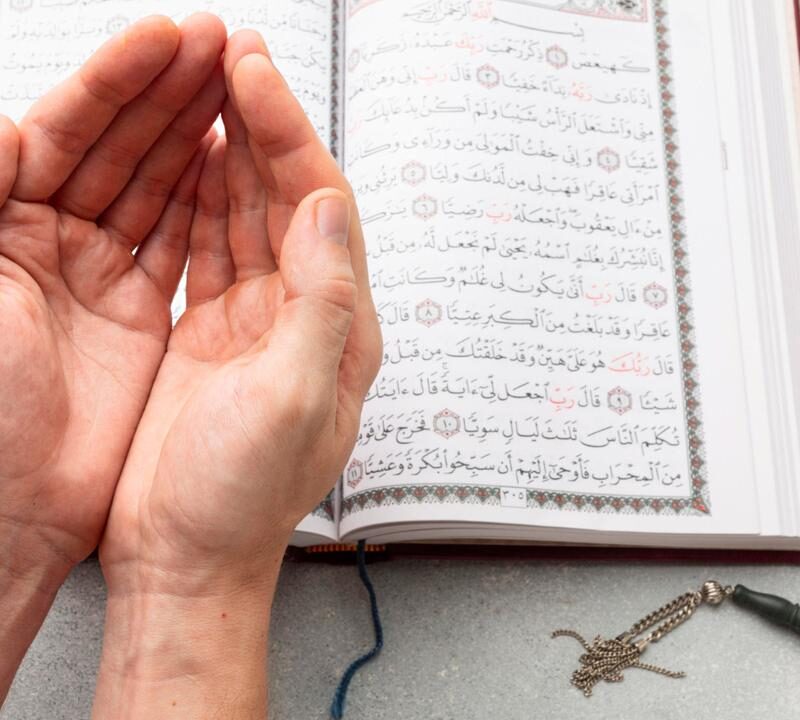 وَحَنَانًا مِّن لَّدُنَّا وَبَرًّۢا بِوَٰلِدَيْهِ وَلَمْ
يَكُن يَمُوتُ
وَيَوْمَ
بِسْمِ ٱللَّهِ ٱلرَّحْمَٰنِ ٱلرَّحِيمِ
كٓهيعٓصٓ ١ ذِكْرُ رَحْمَتِ رَبِّكَ عَبْدَهُۥ زَكَرِيَّآ
إِذْ نَادَىٰ رَبَّهُۥ نِدَآءً خَفِيًّا ٣ قَالَ رَبِّ إِنِّى وَهَنَ ٱلْعَظْمُ
مِنِّى وَٱشْتَعَلَ ٱلرَّأْسُ شَيْبًا وَلَمْ أَكُنۢ بِدُعَآئِكَ رَبِّ
شَقِيًّا ٤ وَإِنِّى خِفْتُ ٱلْمَوَٰلِىَ مِن وَرَآءِى وَكَانَتِ
ٱمْرَأَتِى عَاقِرًا فَهَبْ لِى مِن لَّدُنكَ وَلِيًّا ٥ يَرِثُنِى
مِنْ ءَالِ يَعْقُوبَ وَٱجْعَلْهُ رَبِّ رَضِيًّا ٦
إِنَّا نُبَشِّرُكَ بِغُلَٰمٍ ٱسْمُهُۥ يَحْيَىٰ لَمْ نَجْعَل لَّهُۥ مِن قَبْلُ
٧ قَالَ رَبِّ أَنَّىٰ يَكُونُ لِى غُلَٰمٌ وَكَانَتِ
عَاقِرًا وَقَدْ بَلَغْتُ مِنَ ٱلْكِبَرِ عِتِيًّا ٨ قَالَ
قَالَ رَبُّكَ هُوَ عَلَىَّ هَيِّنٌ وَقَدْ خَلَقْتُكَ مِن قَبْلُ
شَيْـًٔا ٩ قَالَ رَبِّ ٱجْعَل لِّىٓ ءَايَةً قَالَ ءَايَتُكَ
تُكَلِّمَ ٱلنَّاسَ ثَلَٰثَ لَيَالٍ سَوِيًّا ١٠ فَخَرَجَ عَلَىٰ قَوْمِهِۦ
مِنَ ٱلْمِحْرَابِ فَأَوْحَىٰٓ إِلَيْهِمْ أَن سَبِّحُوا۟ بُكْرَةً وَعَشِيًّا ١١
٣٠٥